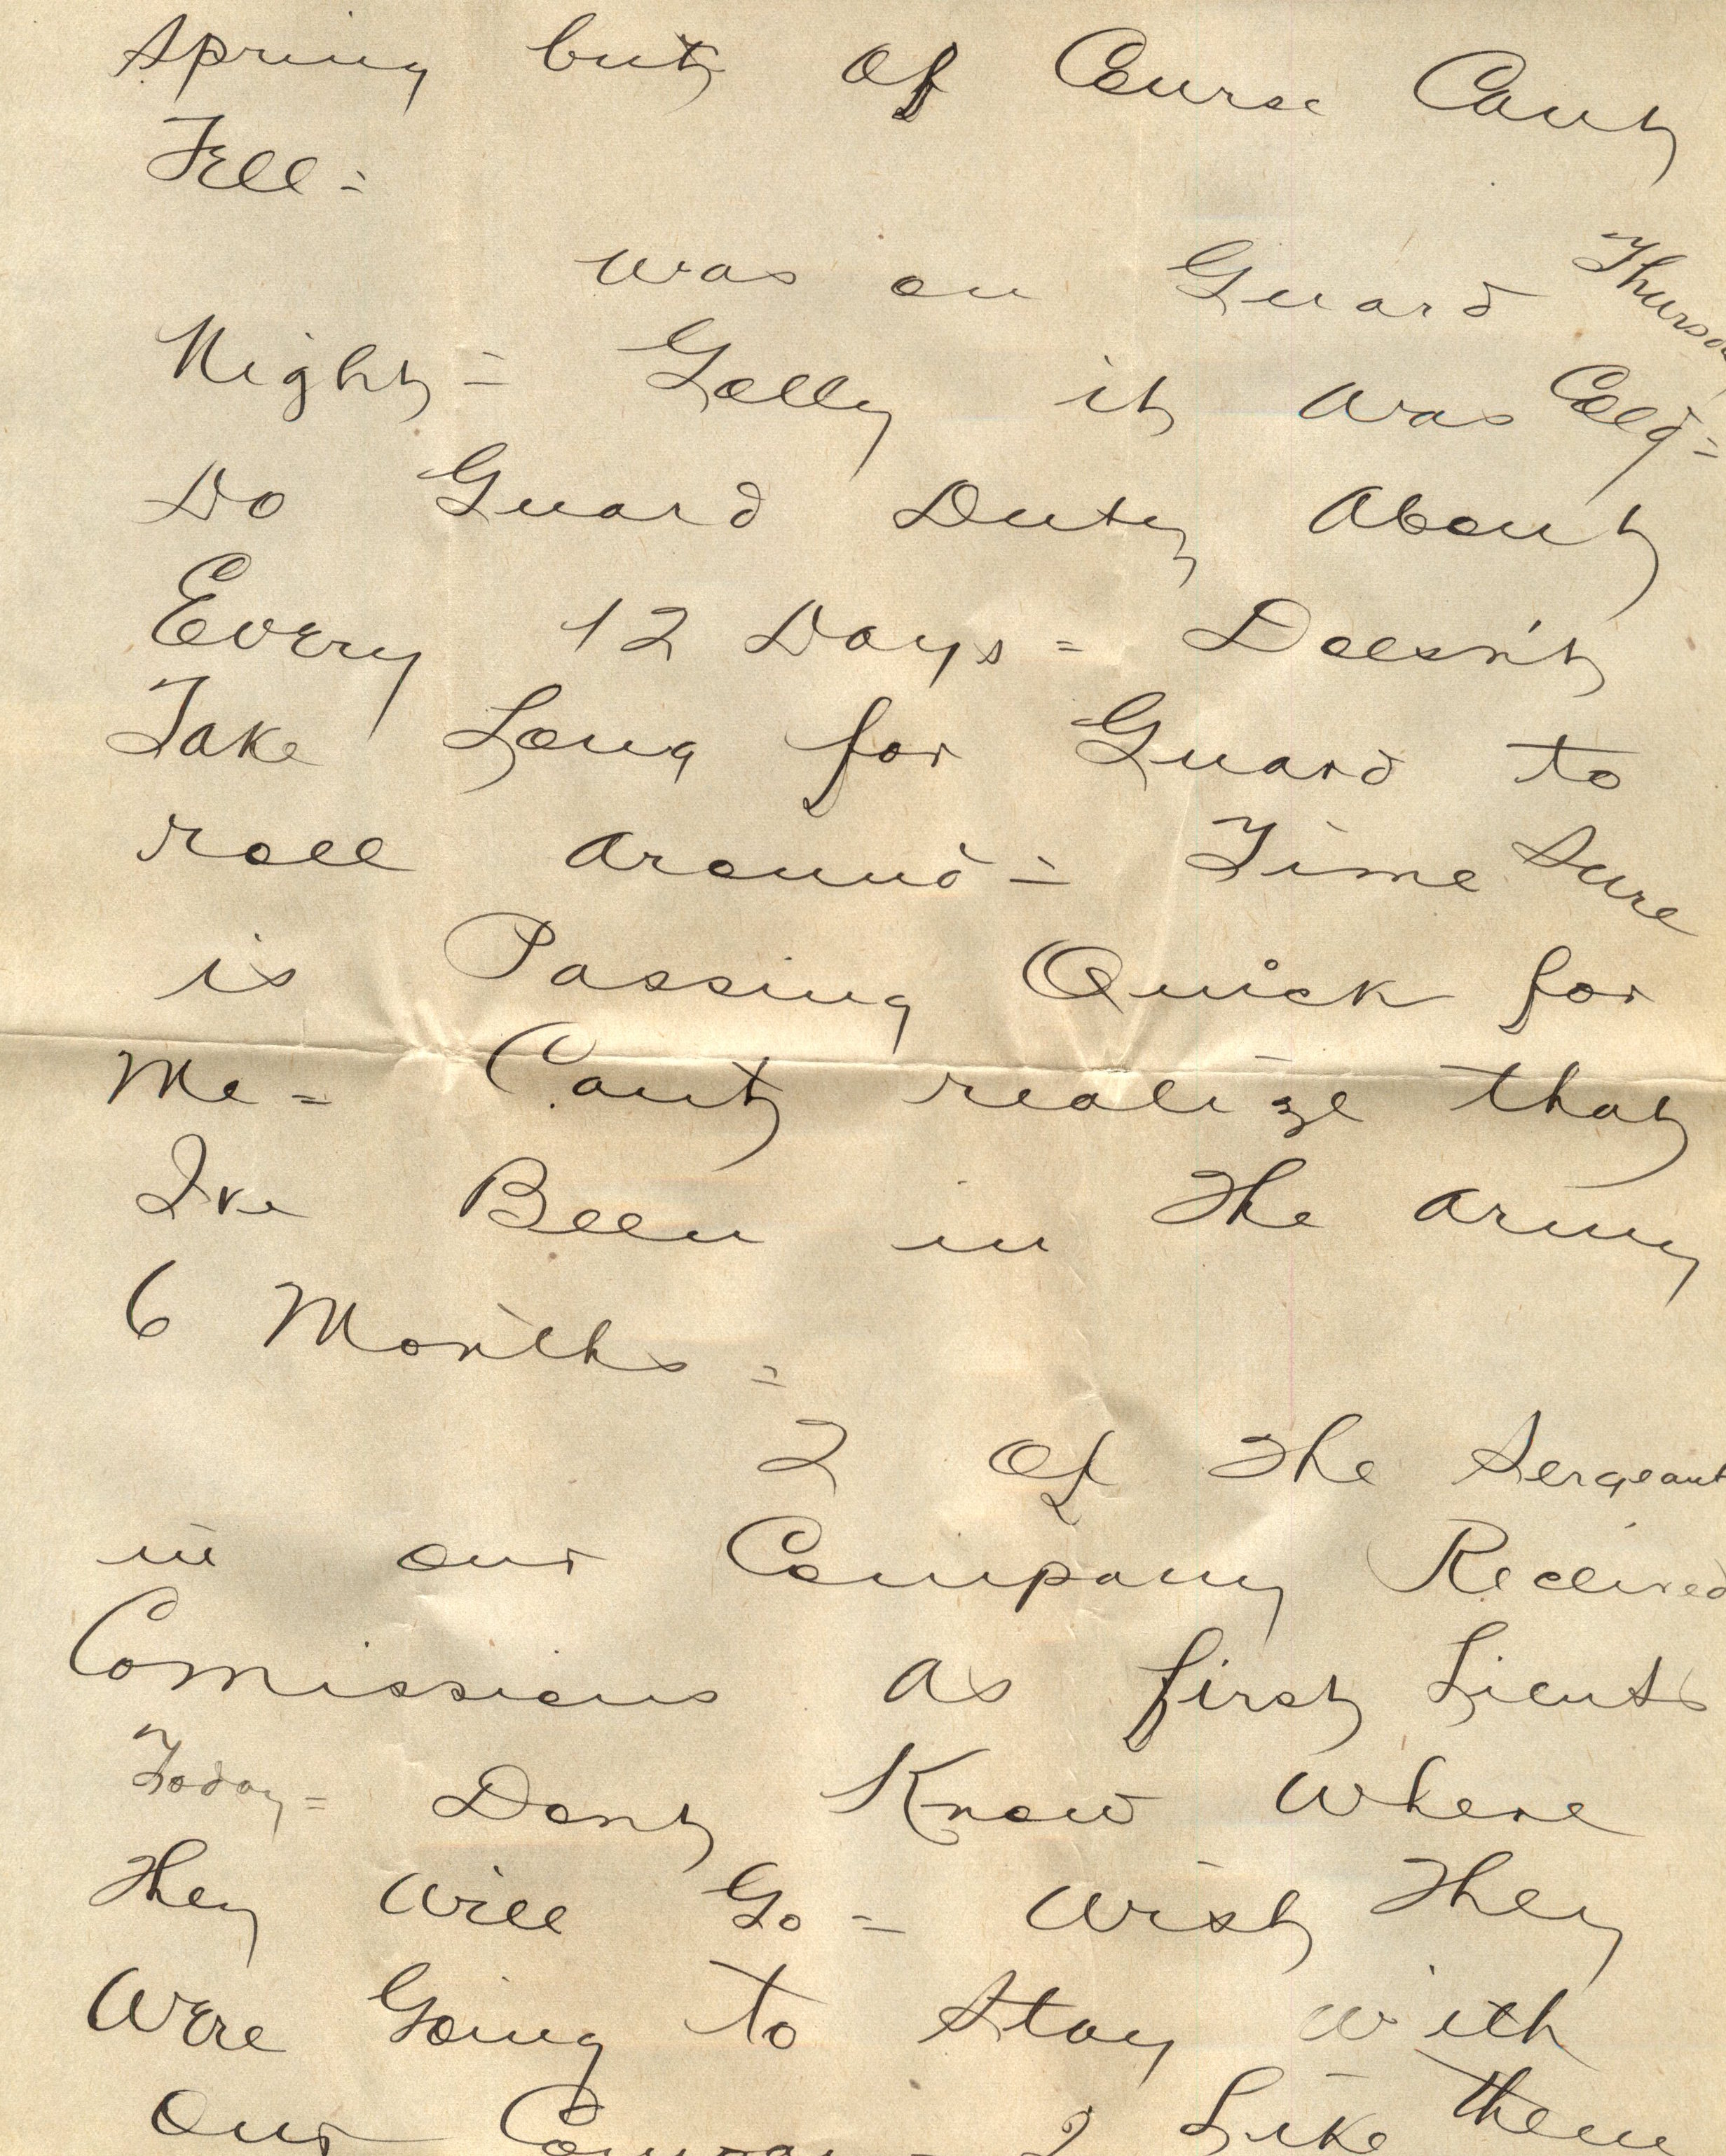 Spring but Of Course Cant
Tell =
was on Guard Thursd
Night = Golly it was Cold =
Do Guard Duty About
Every 12 Days = Doesn't
Take Long for Guard to
roll around = Time Sure
is Passing Quick for
Me = Cant realize that
Ive Been in The Army
6 Months =
2 Of The Sergeant
in our Company Received
Comissions as first Lieuts
Today = Dont Know Where
They will Go = Wish They
Were Going to Stay with
Our Company = I Like them